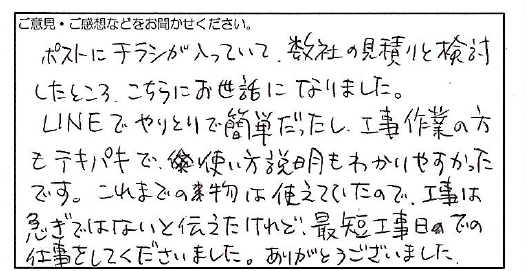 ご意見・ご感想などをお聞かせください。
ポストにチラシが入っていて、数社の見積りと検討
したところ、こちらにお世話になりました。
LINEでやりとりで簡単だったし、工事作業の方
もテキパキで、使い方説明もわかりやすかった
です。これまでの物は使えていたので、工事は
急ぎではないと伝えたけれど、最短工事日での
仕事をしてくださいました。ありがとうございました。